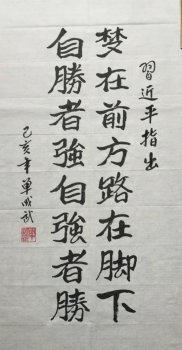 習近平指出
梦在前方路在脚下
自勝者強自強者勝
己亥年单成武